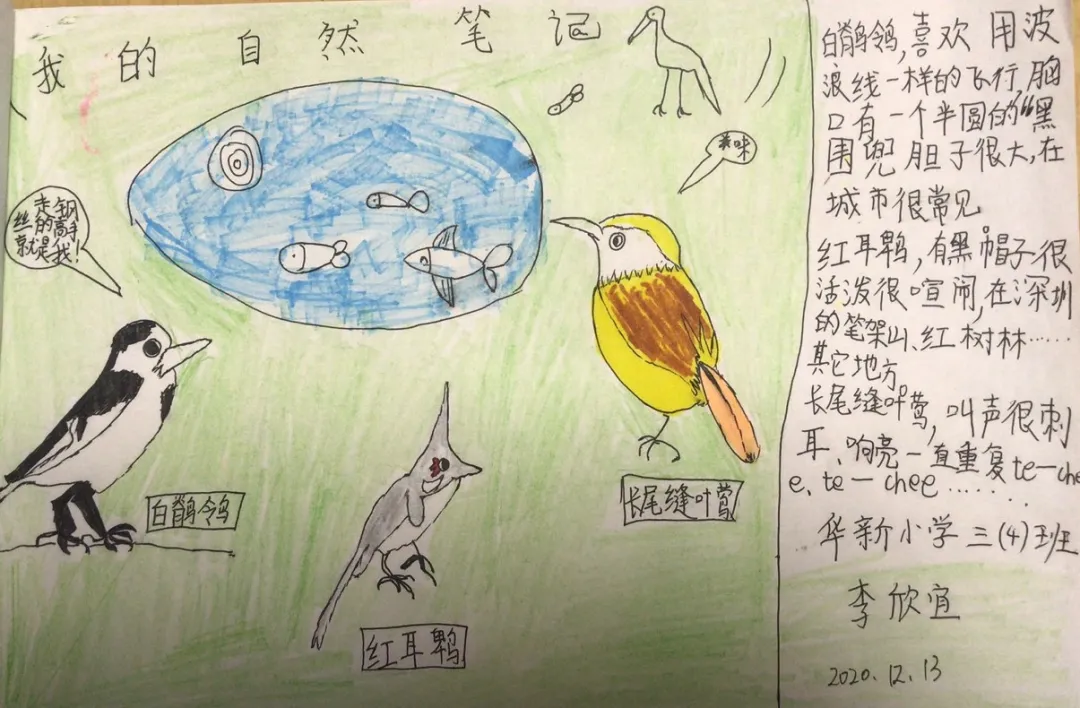 我的自然笔记
走钢
丝的高手
就是我!
美味
白鹡鸰
红耳鹎
长尾缝叶莺
白鹡鸰,喜欢用波
浪线一样的飞行,胸
口有一个半圆的“黑
围兜 胆子很大,在
城市很常见。
红耳鹎,有黑帽子很
活泼很喧闹,在深圳
的笔架山、红树林……
其它地方
长尾缝叶莺,叫声很刺
耳、响亮一直重复te-che
e、te-chee……
华新小学三(4)班
李欣宜
2020.12.13